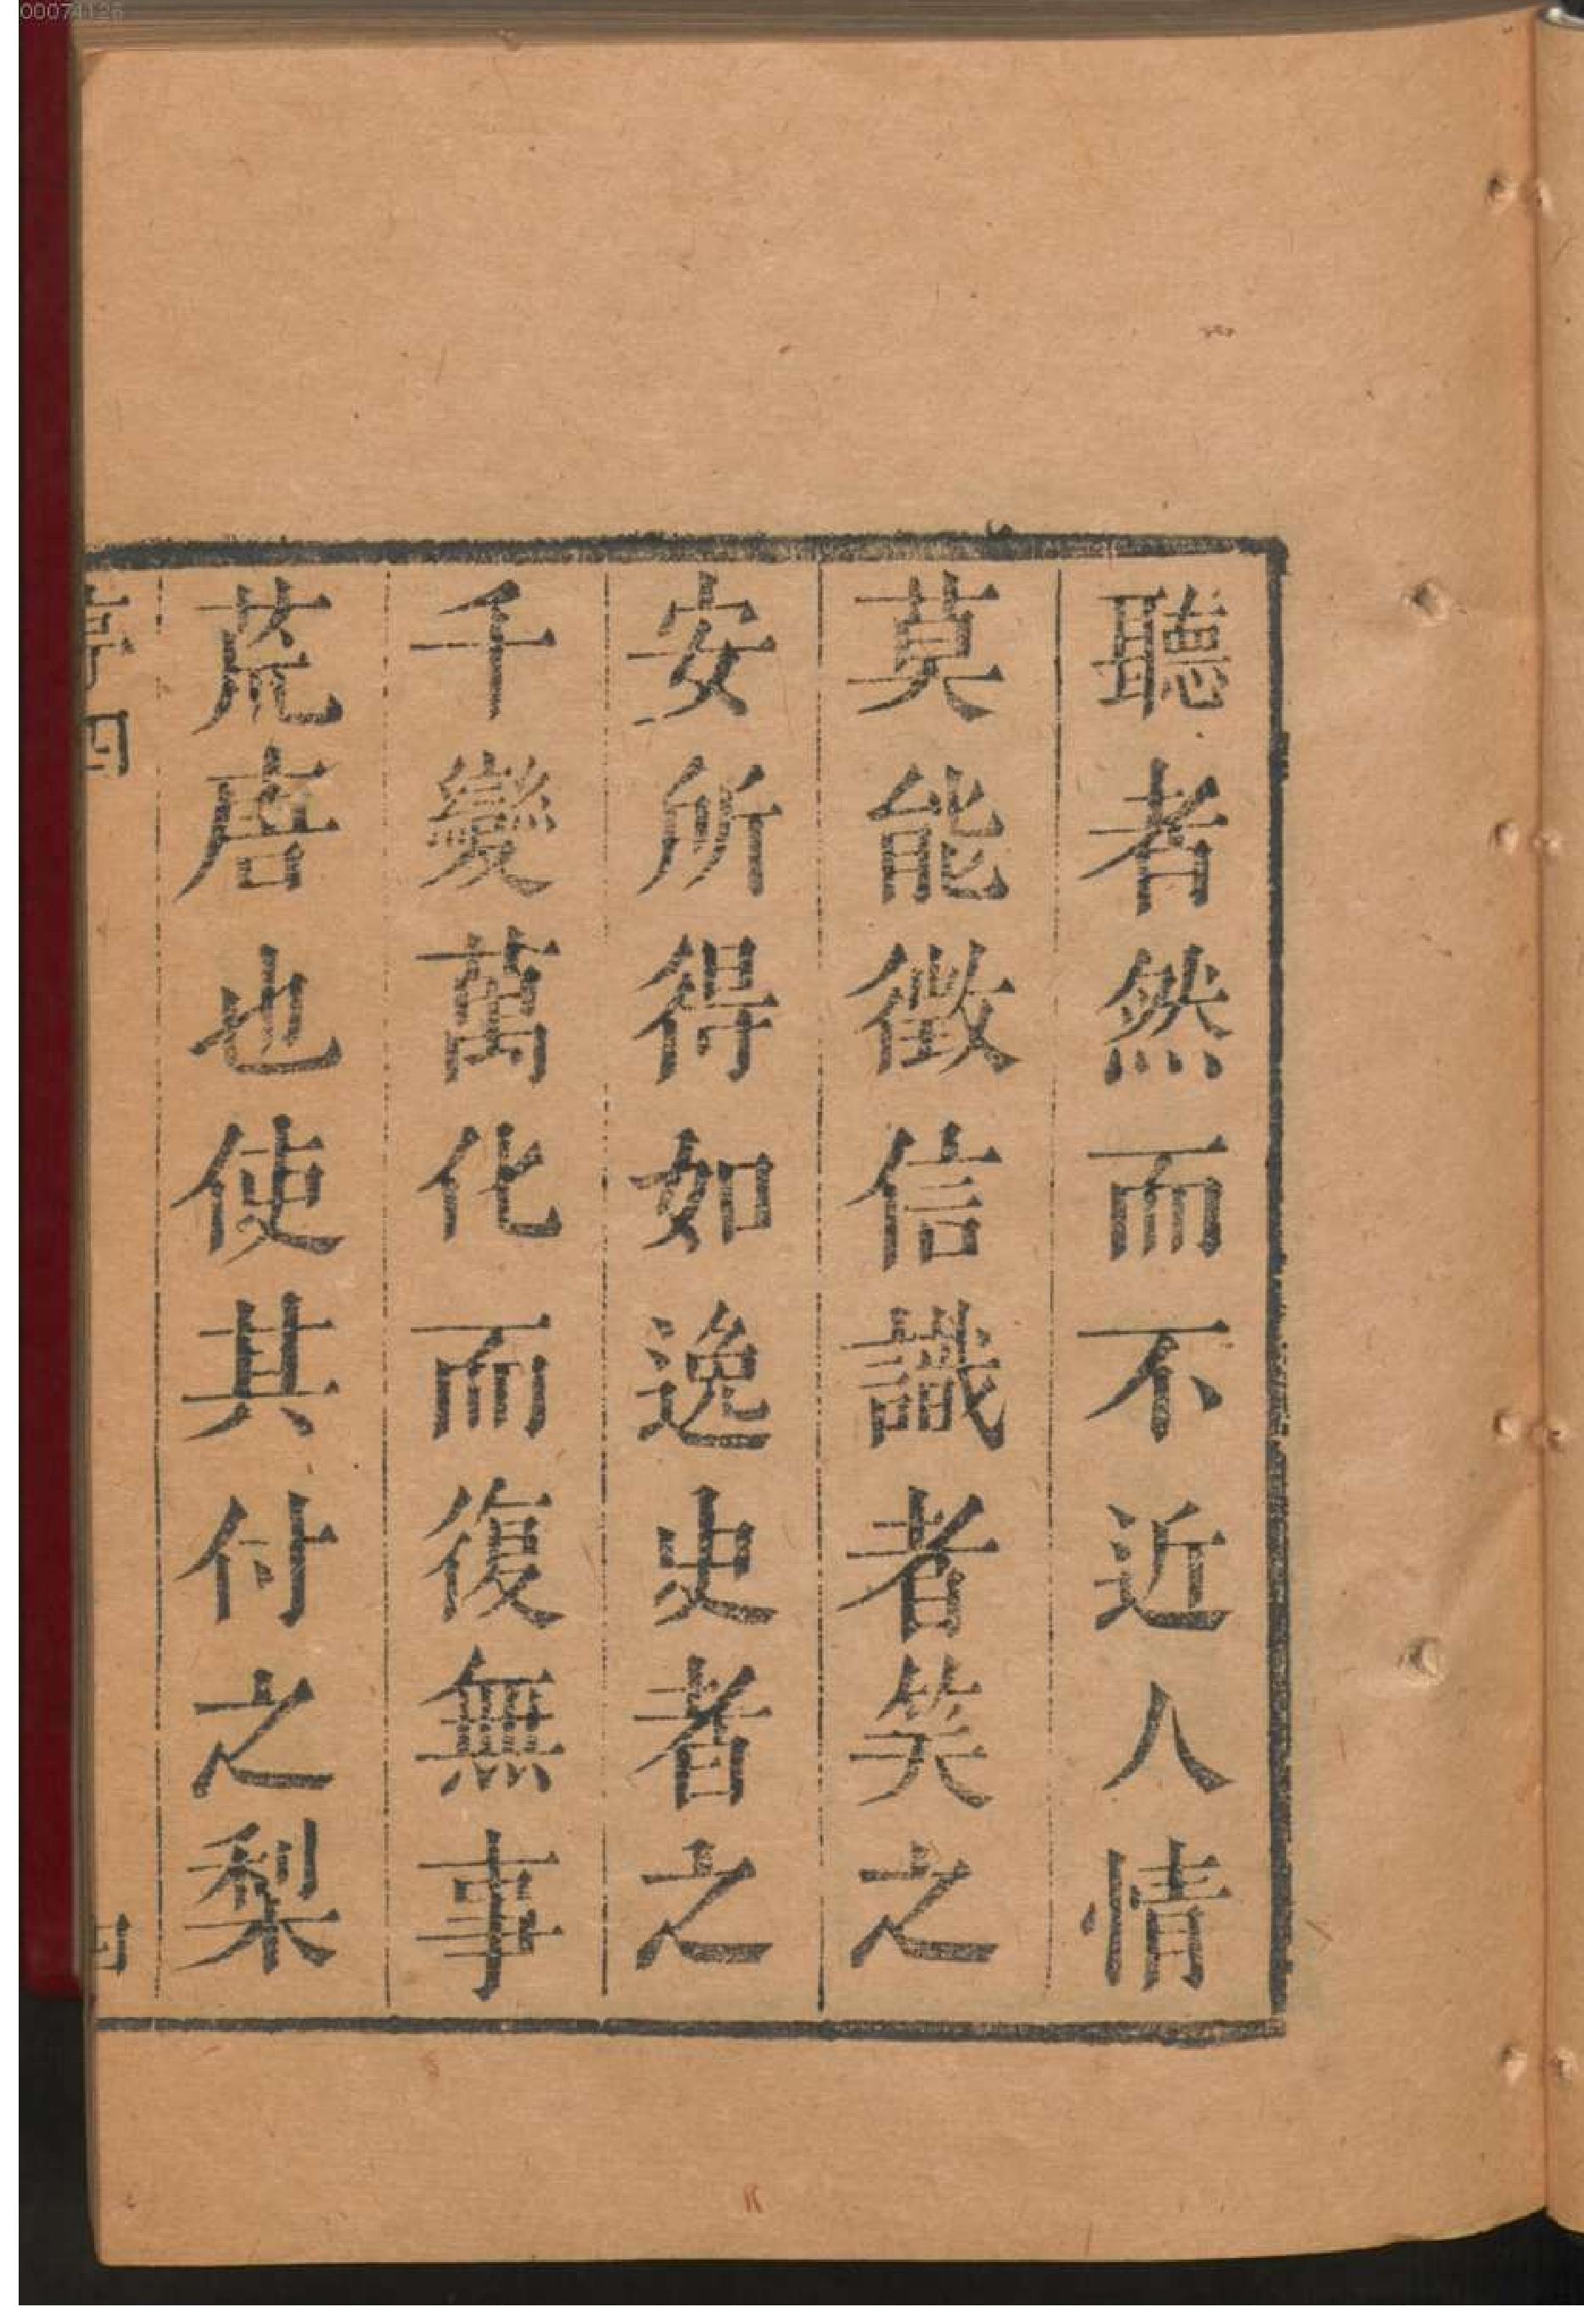 聽者然而不近人情
莫能徵信識者笑之
安所得如逸史者之
千變萬化而復無事
荒唐也使其付之梨
序四
四
00074126